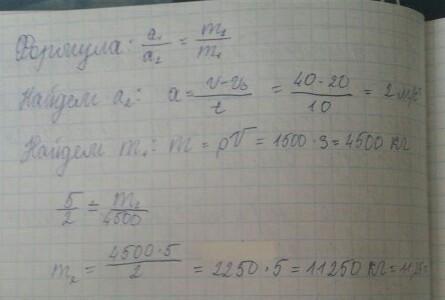 Формула: a₁/a₂ = m₂/m₁
Найдем a₂: a = v-v₀/t = 40-20/10 = 2 м/с²
Найдем m₁: m = ρV = 1500 · 3 = 4500 кг
5/2 = m₂/4500
m₂ = 4500·5/2 = 2250·5 = 11250 кг = 11,25